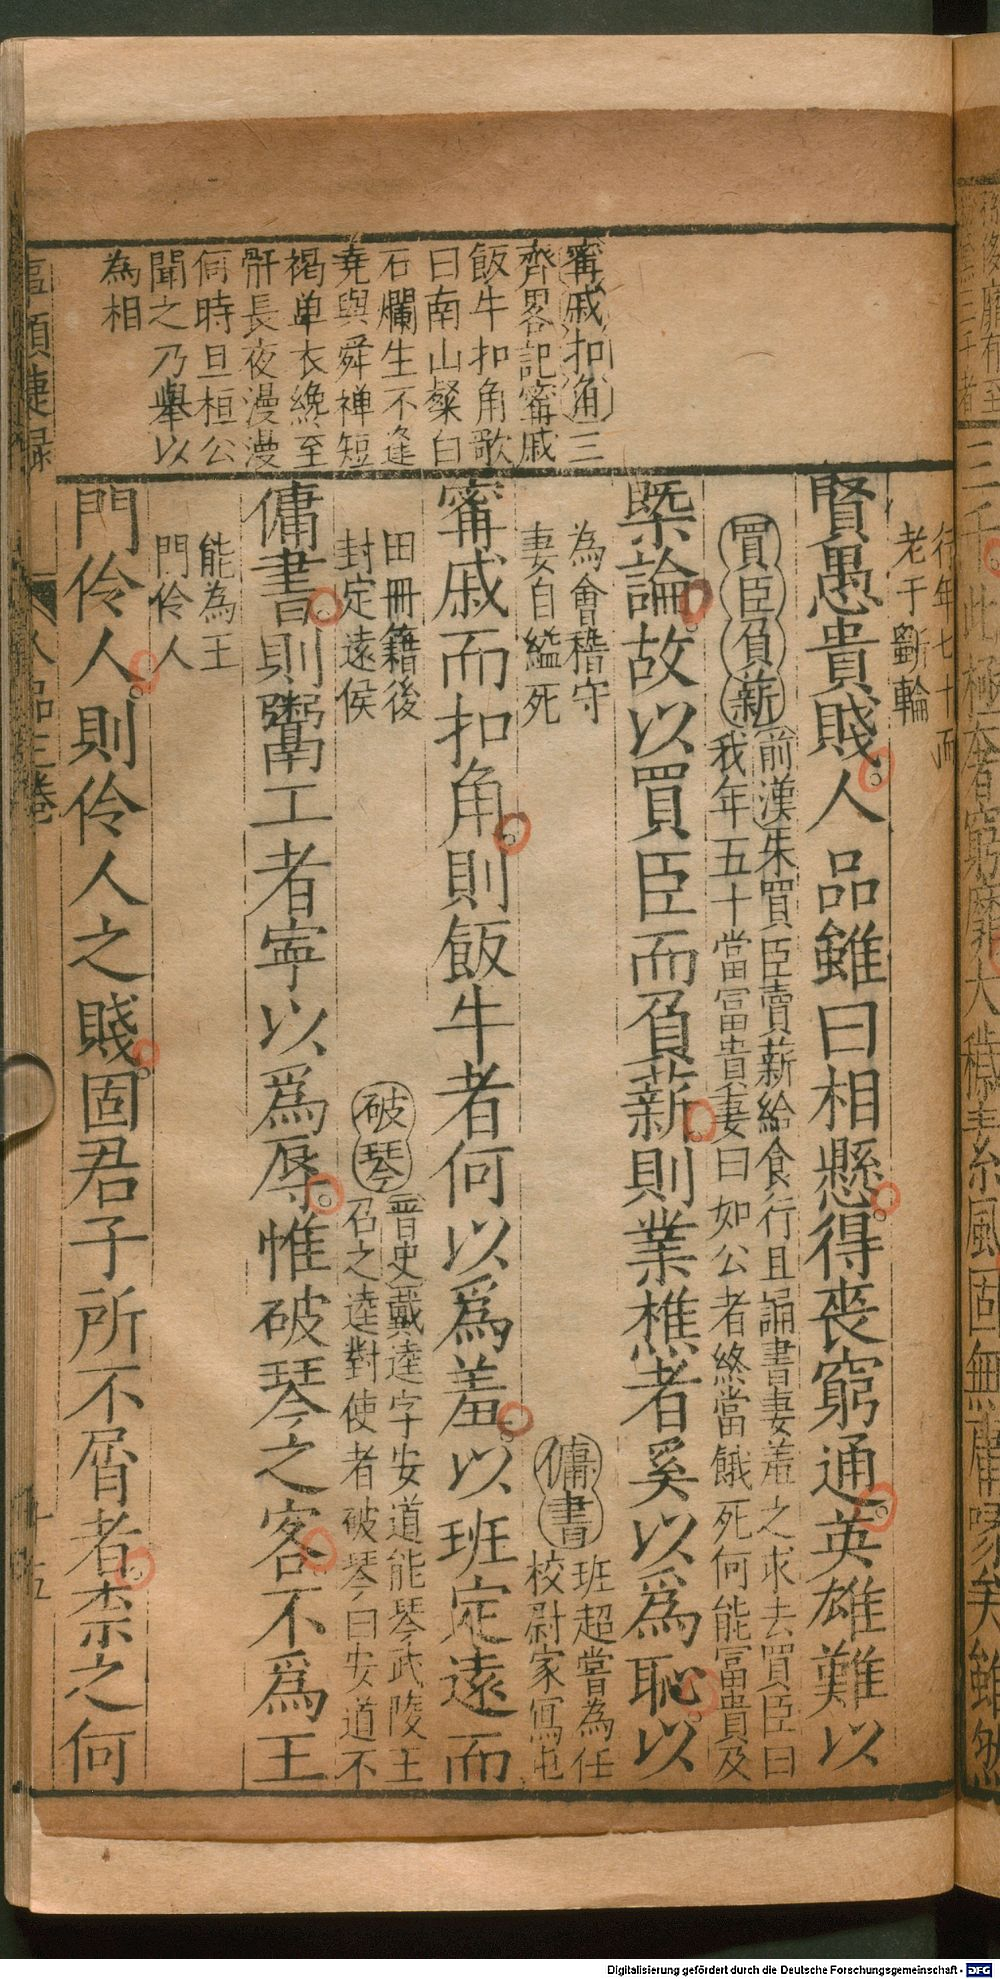 甯戚扣角三
齊畧記甯戚
飯牛扣角歌
曰南山粲白
石爛生不逢
堯與舜禅短
褐单衣終至
骭長夜漫漫
何時旦桓公
聞之乃舉以
為相
行年七十而
老于斵輪
賢愚貴賤人品雖曰相懸得丧窮通英雄難以
買臣負薪前漢朱買臣賣薪給食行且誦書妻羞之求去買臣曰
我年五十當冨貴妻曰如公者終當餓死何能冨貴及
槩論故以買臣而負薪則業樵者奚以爲恥以
為會稽守
妻自縊死
傭書班超嘗為任
校尉家冩屯
甯戚而扣角則飯牛者何以爲羞以班定遠而
田冊籍後
封定遠侯
破琴晋史戴逵字安道能琴武陵王
召之逵對使者破琴曰安道不
傭書則鬻工者寧以爲辱惟破琴之客不爲王
能為王
門伶人
門伶人則伶人之賤固君子所不屑者柰之何
人品三卷
十五
Digitalisierung gefördert durch die Deutsche Forschungsgemeinschaft - DFG